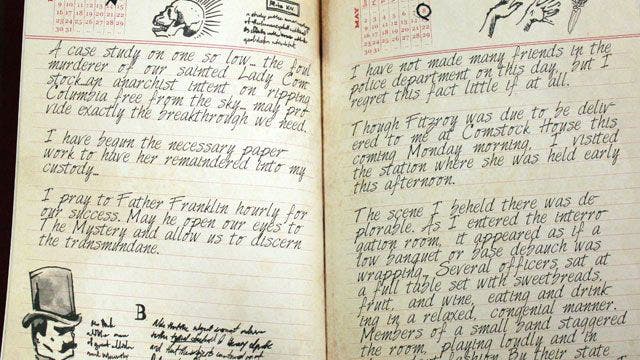 A case study on one so low... the foul
murderer of our sainted Lady Com
stock...an anarchist intent on ripping
Columbia free from the sky... may pro
vide exactly the breakthrough we need.
I have begun the necessary paper
work to have her remaindered into my
custody...
I pray to Father Franklin hourly for
our success. May he open our eyes to
The Mystery and allow us to discern
the transmundane.
B
MAY
I have not made many friends in the
police department on this day, but I
regret this fact little if at all.
Though Fitzroy was due to be deliv-
ered to me at Comstock House this
coming Monday morning, I visited
the station where she was held early
this afternoon.
The scene I beheld there was de
plorable. As I entered the interro
gation room, it appeared as if a
low banquet or base debauch was
wrapping. Several officers sat at
a full table set with sweetbreads,
fruit, and wine, eating and drink
ing in a relaxed, congenial manner.
Members of a small band staggered
the room, playing loudly and in
by their state